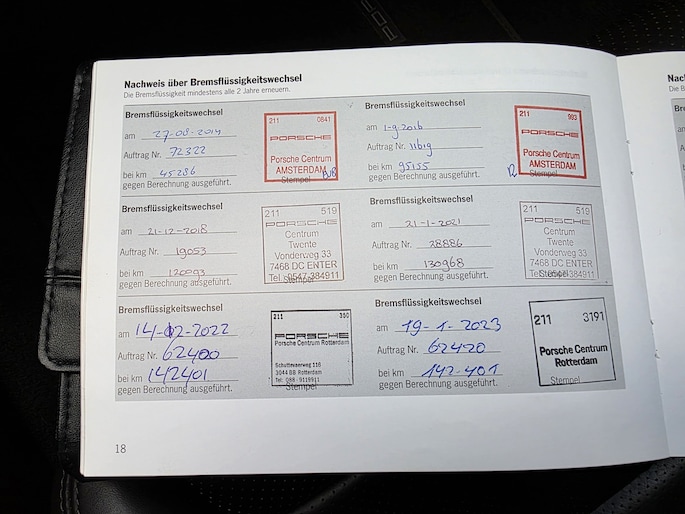 Nachweis über Bremsflüssigkeitswechsel
Die Bremsflüssigkeit mindestens alle 2 Jahre erneuern.
Bremsflüssigkeitswechsel
am 27-08-2014
Auftrag Nr. 72322
bei km 45286
gegen Berechnung ausgeführt.
211 0841
PORSCHE
Porsche Centrum
AMSTERDAM
Stempel
Bremsflüssigkeitswechsel
am 1-9-2016
Auftrag Nr.
bei km 95155
gegen Berechnung ausgeführt.
211 993
PORSCHE
Porsche Centrum
AMSTERDAM
Stempel
Bremsflüssigkeitswechsel
am 21-12-2018
Auftrag Nr. 19053
bei km 120093
gegen Berechnung ausgeführt.
211 519
PORSCHE
Centrum
Twente
Vonderweg 33
7468 DC ENTER
Tel. 0547-384911
Stempel
Bremsflüssigkeitswechsel
am 21-1-2021
Auftrag Nr. 28886
bei km 130968
gegen Berechnung ausgeführt.
211 519
PORSCHE
Centrum
Twente
Vonderweg 33
7468 DC ENTER
Stempel
Bremsflüssigkeitswechsel
am 14-02-2022
Auftrag Nr. 62400
bei km 142401
gegen Berechnung ausgeführt.
211 350
PORSCHE
Porsche Centrum Rotterdam
Schuttevaerweg 116
3044 BB Rotterdam
Tel: 088 - 9119911
Stempel
Bremsflüssigkeitswechsel
am 19-1-2023
Auftrag Nr. 62420
bei km 142-401
gegen Berechnung ausgeführt.
211 3191
Porsche Centrum
Rotterdam
Stempel
18